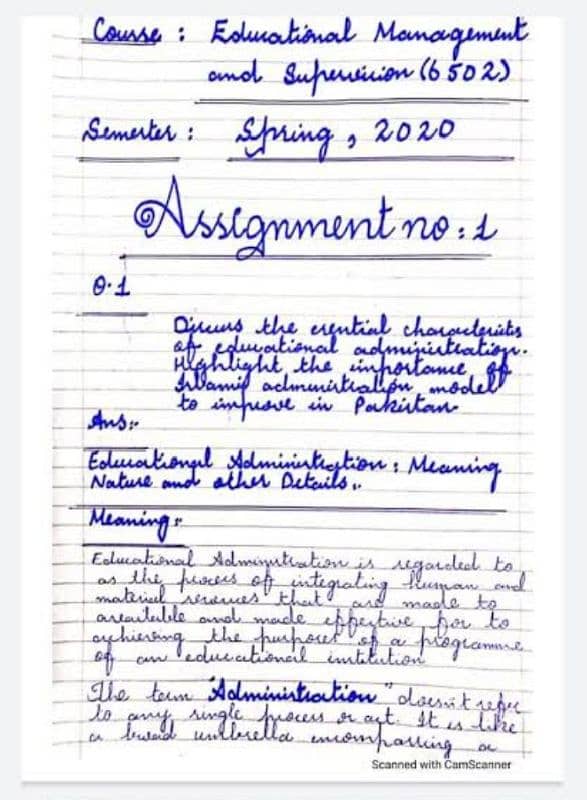 Course : Educational Management
and Supervision (6502)
Semester : Spring, 2020
Assignment no : 1
Q.1
Discuss the essential characteristics
of educational administration.
Highlight the importance of
Islamic administration model
to improve in Pakistan.
Ans:-
Educational Administration : Meaning
Nature and other Details..
Meaning:-
Educational Administration is regarded to
as the process of integrating human and
material resources that are made to
available and made effective for to
achieving the purposes of a programme
of an educational institution
The term "Administration" doesn't refer
to any single process or act. It is like
a broad umbrella encompassing a
Scanned with CamScanner